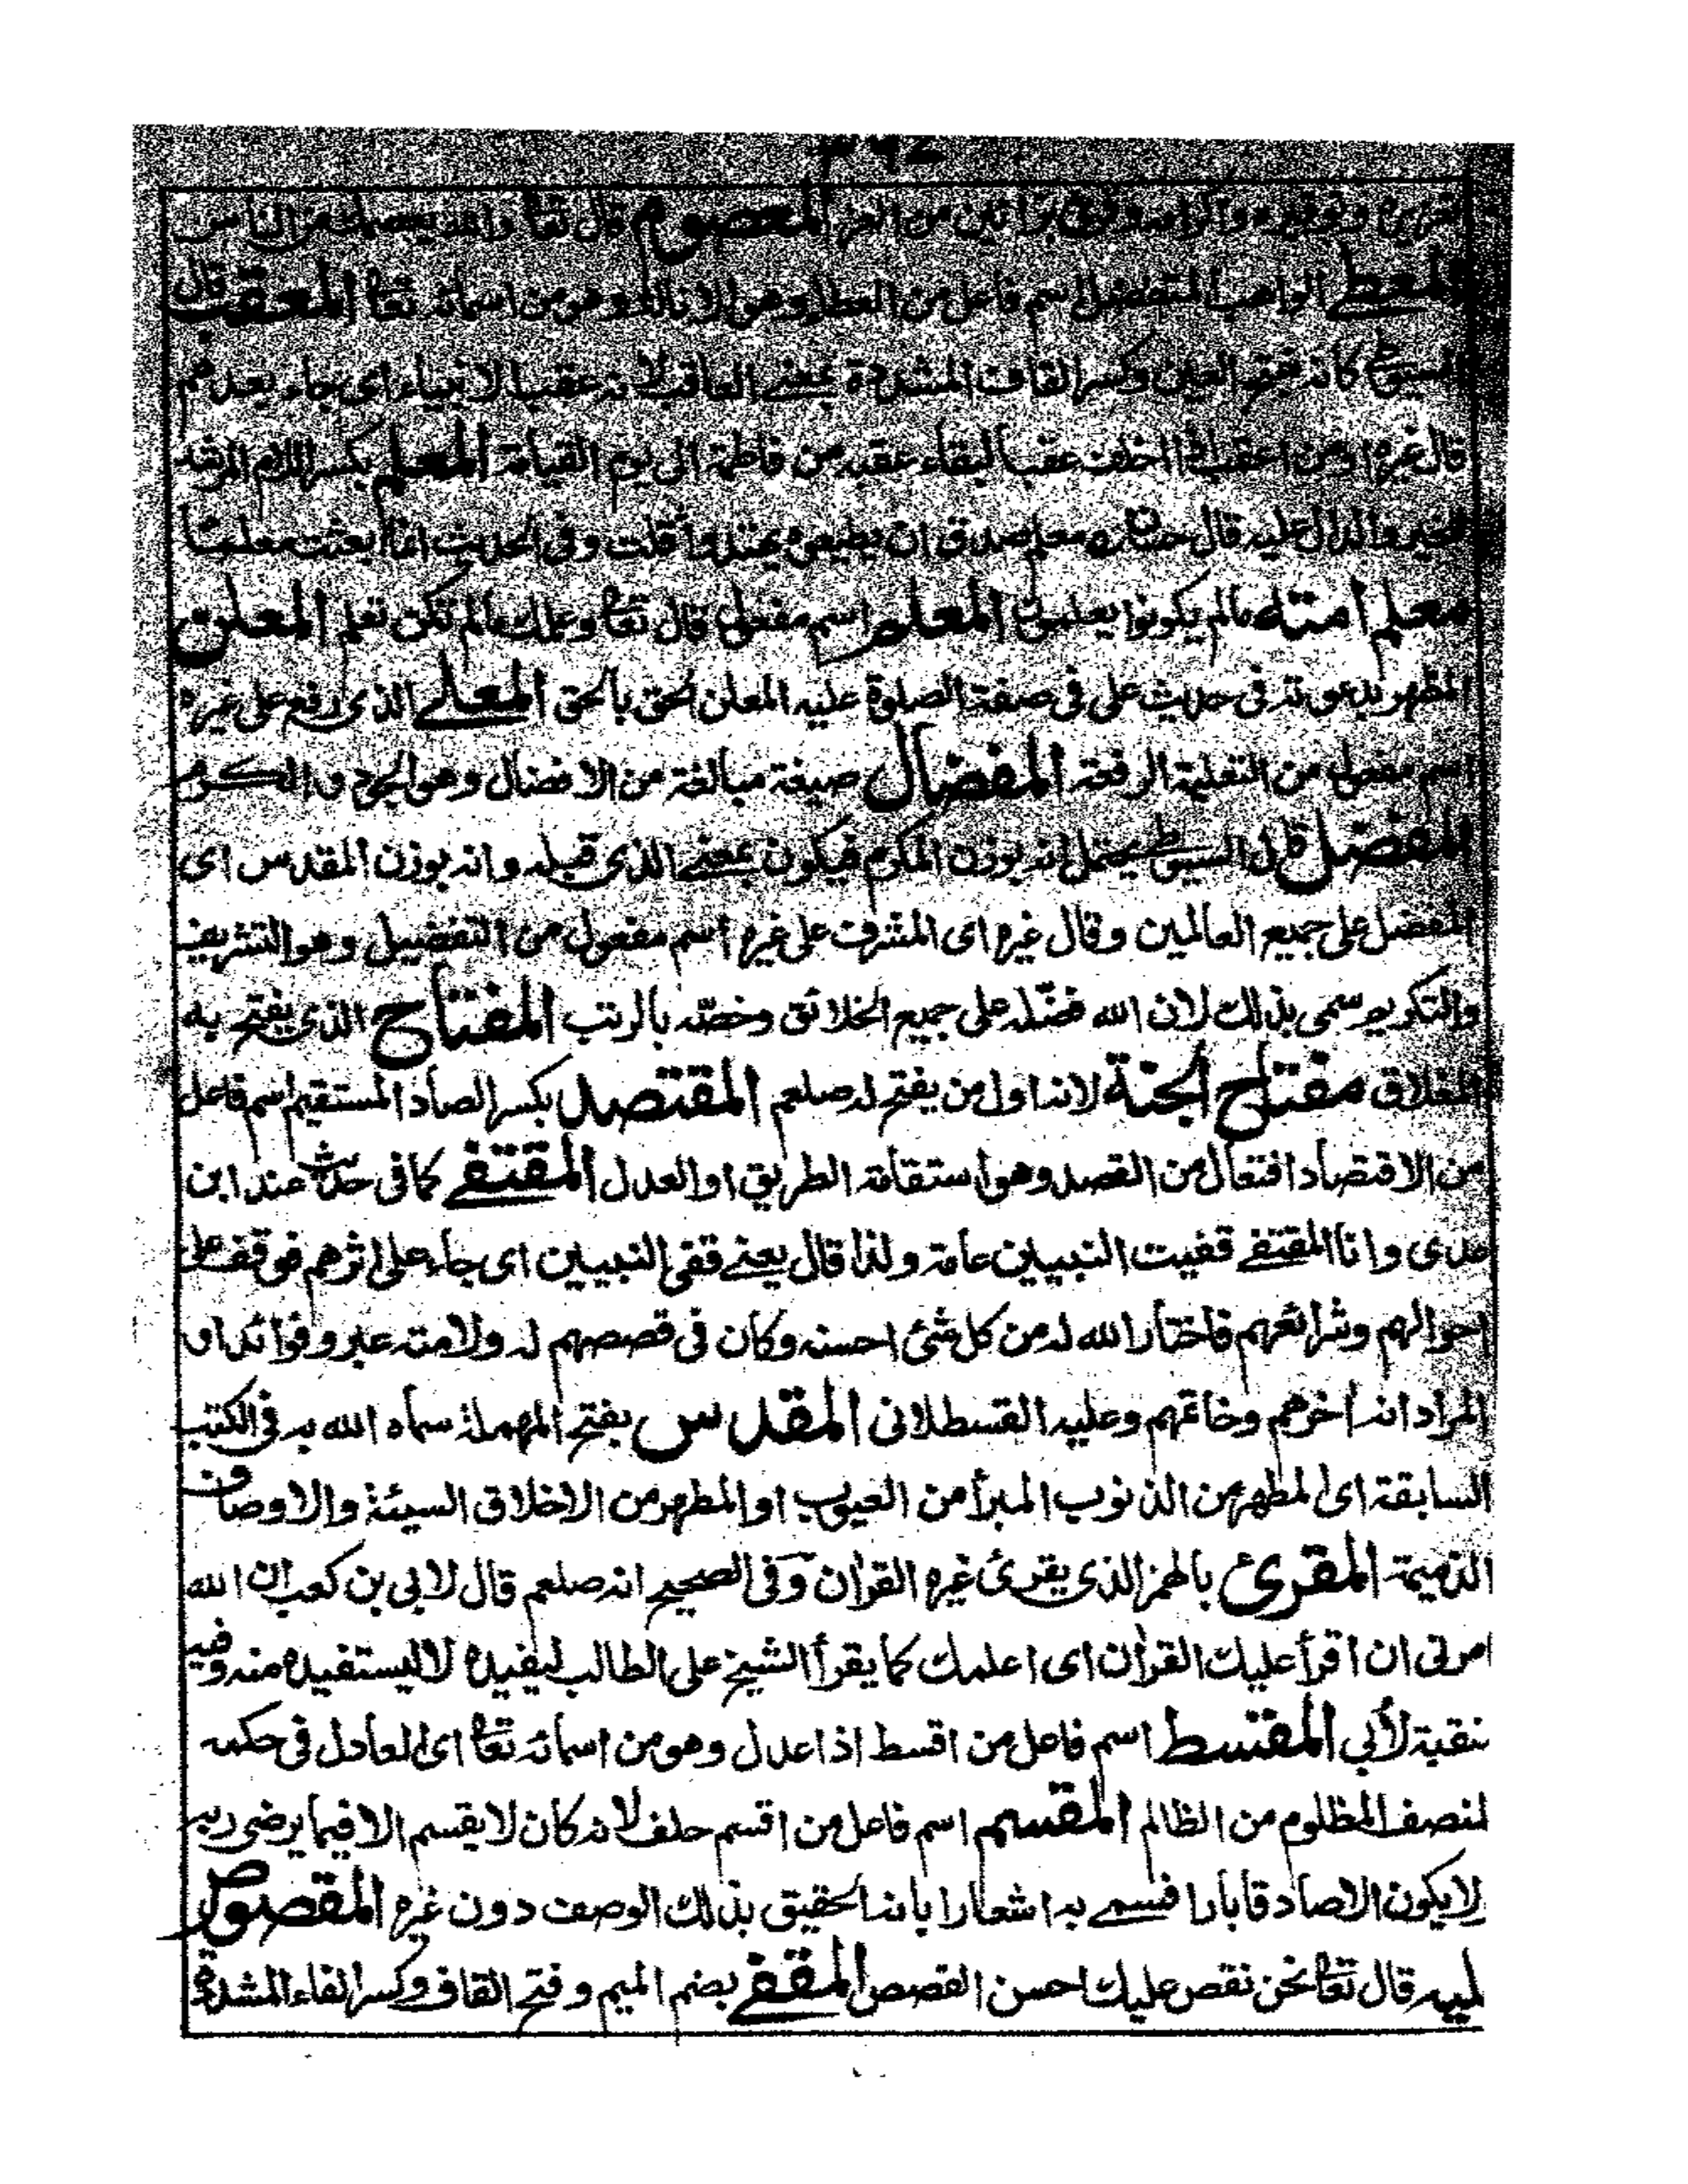 وتوقيره من العز المعصوم قال تعا والله يعصمك من الناس
المعطے الواهب المتفضل اسم فاعل من العطاء وهو الانالة وهو من اسمائه تعا المعقب قال
السيوطی كانه بفتح العين وكسر القاف المشددة بمعنے العاقب لانه عقب الانبياء ای جاء بعدهم
قال غيره او من اعقب اذا اخلف عقبا لبقاء عقبه من فاطمة الى يوم القيامة المعلم بكسر اللام المرشد
للخير والدال عليه قال حسان معلم صدق ان يطيعوه يهتدوا قلت وفى الحديث انما بعثت معلما
معلم امته مالم يكونوا يعلمون المعلم اسم مفعول قال تعا وعلمك مالم تكن تعلم المعلن
المظهر بدعوته فى حديث على فى صفة الصلوة عليه المعلن الحق بالحق المعلے الذى رفع على غيره
اسم مفعول من التعلية الرفعة المفضال صيغة مبالغة من الافضال وهو الجود والكرم
المفضل قال السيوطے يحتمل انه بوزن المكرم فيكون بمعنے الذى قبله وانه بوزن المقدس اى
المفضل على جميع العالمين وقال غيره اى المشرف على غيره اسم مفعول من التفضيل وهو التشريف
والتكريم سمى بذلك لان الله فضّله على جميع الخلائق وخصّه بالرتب المفتاح الذى يفتح به
المغلاق مفتاح الجنة لانه اول من يفتح له صلعم المقتصد بكسر الصاد المستقيم اسم فاعل
من الاقتصاد افتعال من القصد وهو استقامة الطريق او العدل المقتفے كما فى حديث عند ابن
عدى وانا المقتفے قفيت النبيين عامة ولذا قال يعنے قفى النبيين اى جاء على اثرهم فوقف على
احوالهم وشرائعهم فاختار الله له من كل شئ احسنه وكان فى قصصهم له ولامته عبر وفوائد او
المراد انه اخرهم وخاتمهم وعليه القسطلانى المقدس بفتح المهملة سماه الله به فى الكتب
السابقة اى المطهر من الذنوب المبرأ من العيوب او المطهر من الاخلاق السيئة والاوصاف
الذميمة المقرئ بالهمز الذى يقرئ غيره القرآن وفى الصحيح انه صلعم قال لابى بن كعب ان الله
امرنى ان اقرأ عليك القرآن اى اعلمك كما يقرأ الشيخ على الطالب ليفيده لا ليستفيده منه وفيه
منقبة لأبي المقسط اسم فاعل من اقسط اذا عدل وهو من اسمائه تعا اى العادل فى حكمه
المنصف المظلوم من الظالم المقسم اسم فاعل من اقسم حلف لانه كان لا يقسم الا فيما يرضى ربه
لا يكون الا صادقا بارا فسمے به اشعارا بانه الحقيق بذلك الوصف دون غيره المقصوص
عليه قال تعا نحن نقص عليك احسن القصص المقفے بضم الميم وفتح القاف وكسر الفاء المشددة